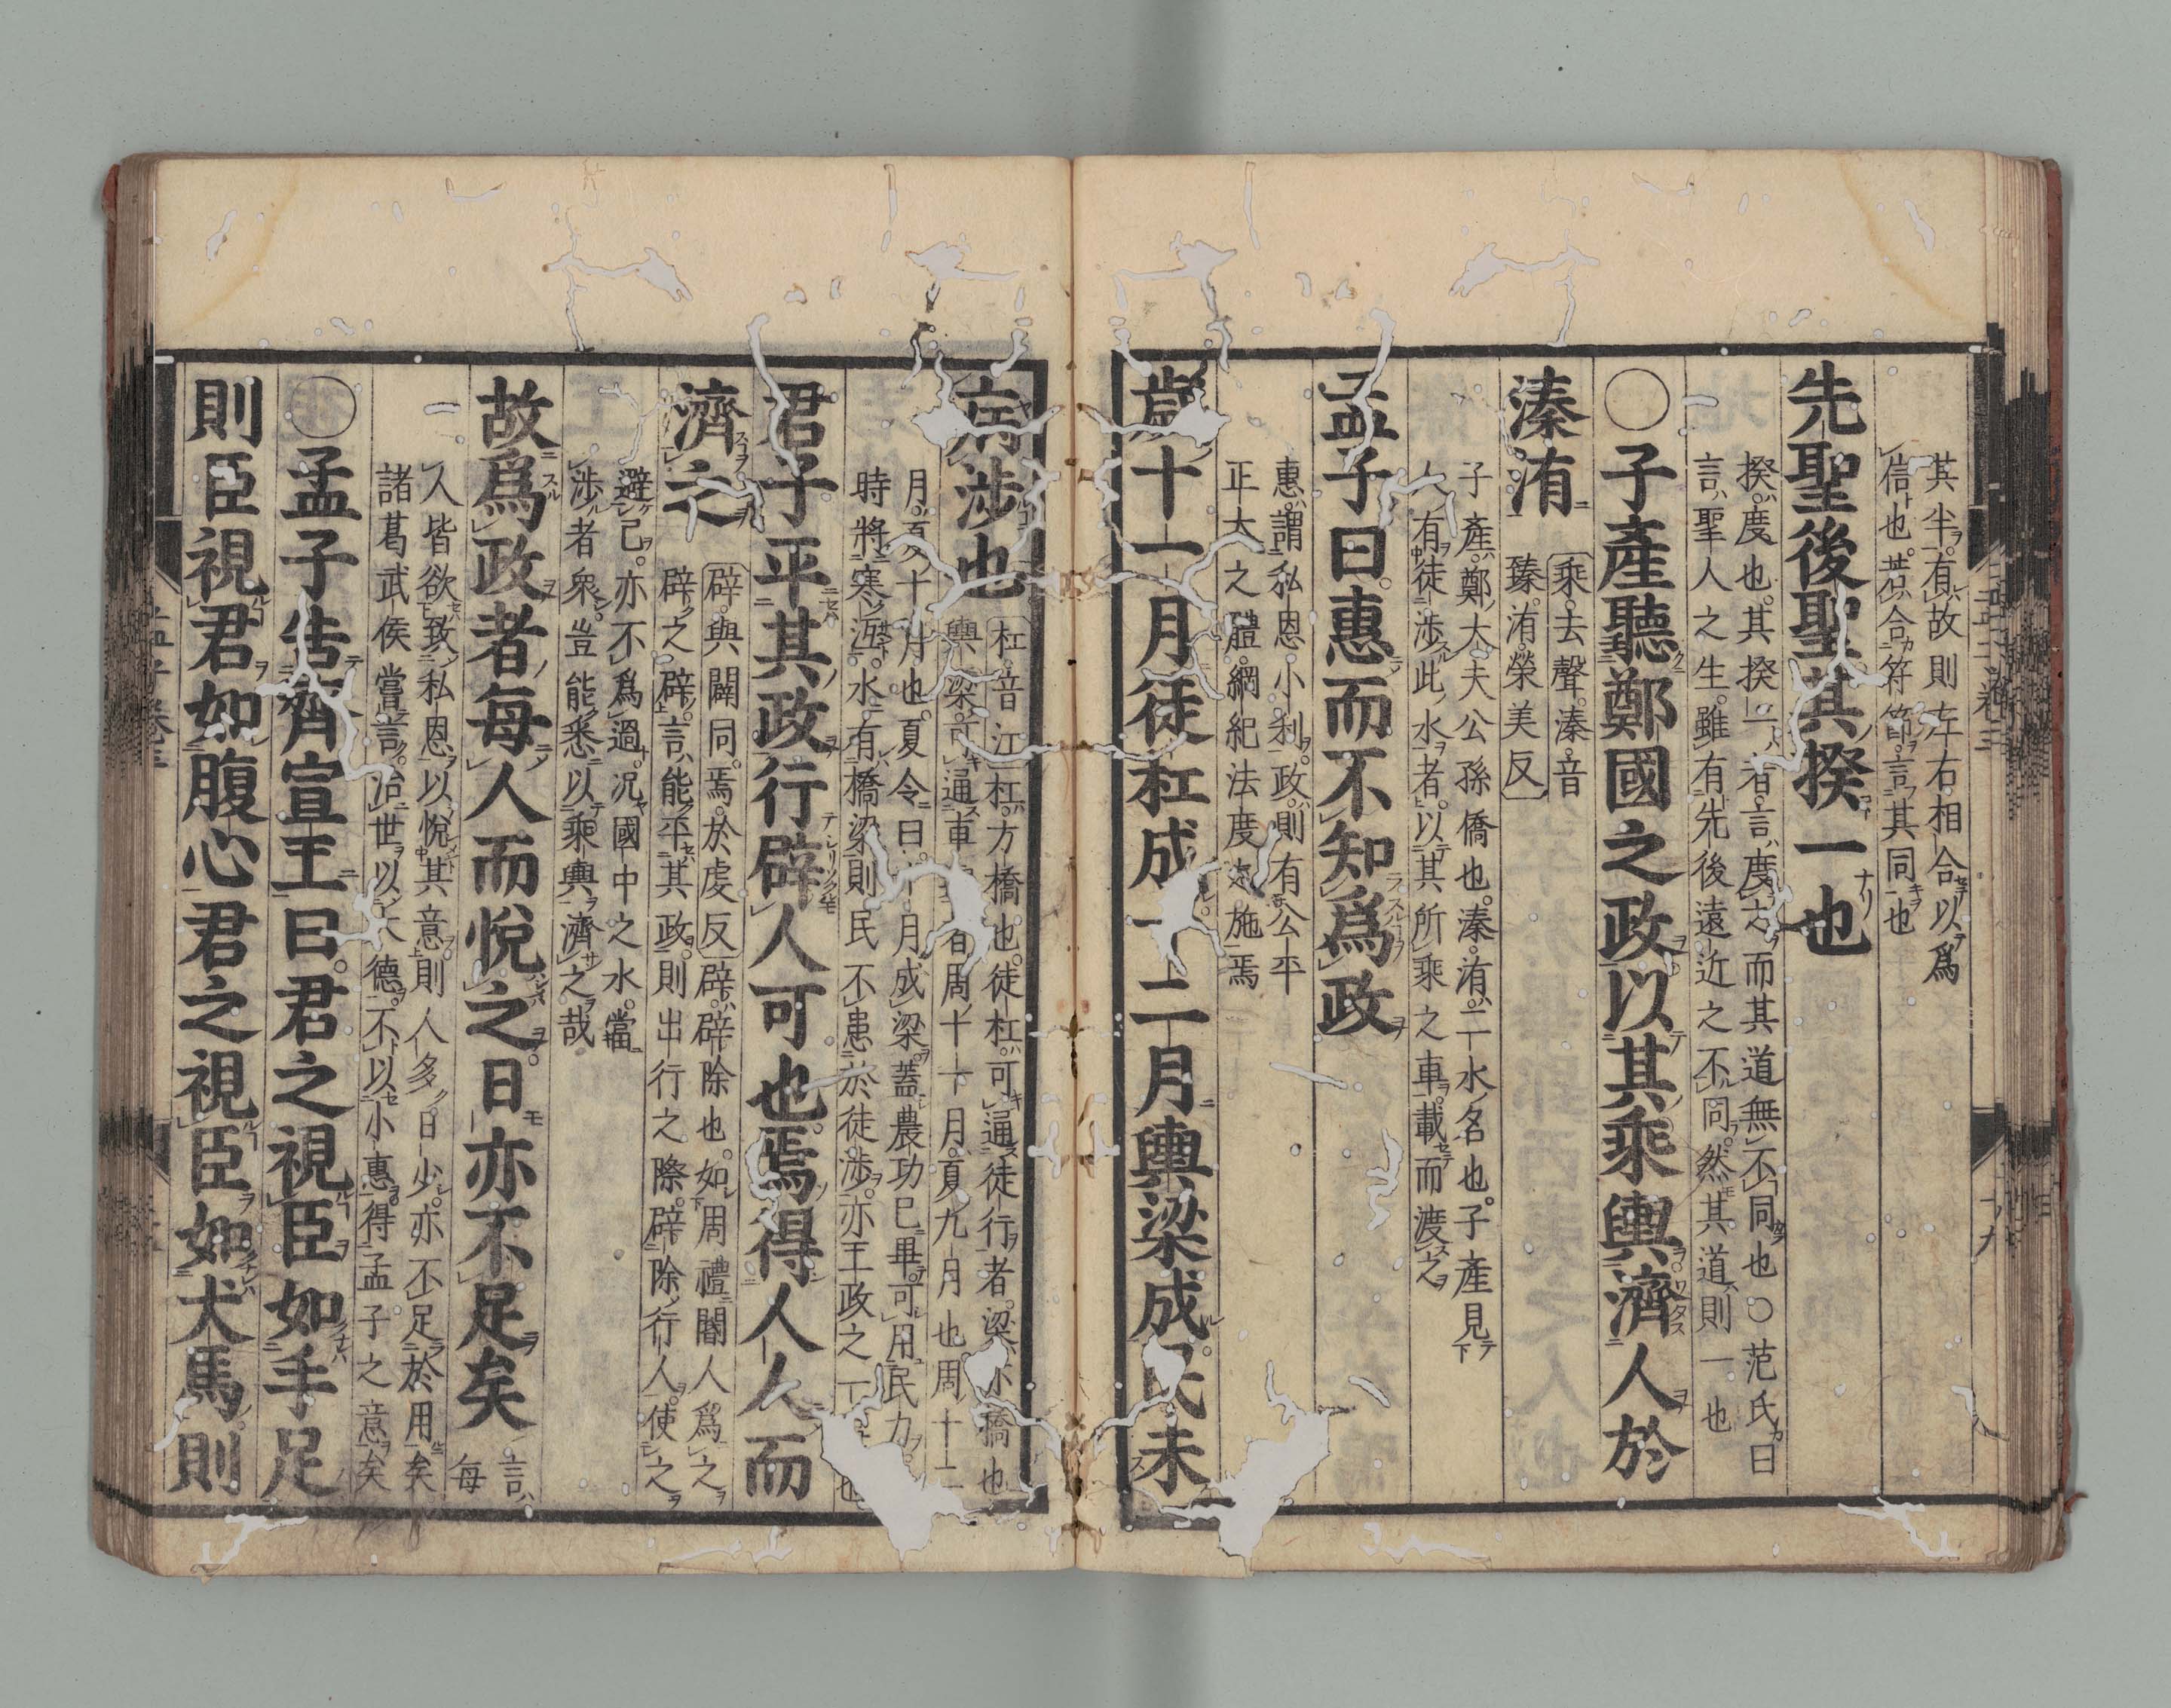 其半有故則左右相合以爲
信也若合符節言其同也
先聖後聖其揆一也
揆度也其揆一者言度之而其道無不同也○范氏曰
言聖人之生雖有先後遠近之不同然其道則一也
○子產聽鄭國之政以其乘輿濟人於
溱洧
乘去聲溱音
臻洧榮美反
子產鄭大夫公孫僑也溱洧二水名也子產見
人有徒涉此水者以其所乘之車載而渡之
孟子曰惠而不知爲政
惠謂私恩小利政則有公平
正大之體綱紀法度之施焉
歲十一月徒杠成十二月輿梁成民未
病涉也
杠音江杠方橋也徒杠可通徒行者梁亦橋也
輿梁可通車者周十一月夏九月也周十二
月夏十月也夏令曰十月成梁蓋農功已畢可用民力
時將寒沍水有橋梁則民不患於徒涉亦王政之一也
君子平其政行辟人可也焉得人人而
濟之
辟與闢同焉於虔反辟辟除也如周禮閽人爲之
辟之辟言能平其政則出行之際辟除行人使之
避己亦不爲過况國中之水當
涉者衆豈能悉以乘輿濟之哉
故爲政者每人而悅之日亦不足矣
言每
人皆欲致私恩以悅其意則人多日少亦不足於用矣
諸葛武侯嘗言治世以大德不以小惠得孟子之意矣
○孟子告齊宣王曰君之視臣如手足
則臣視君如腹心君之視臣如犬馬則